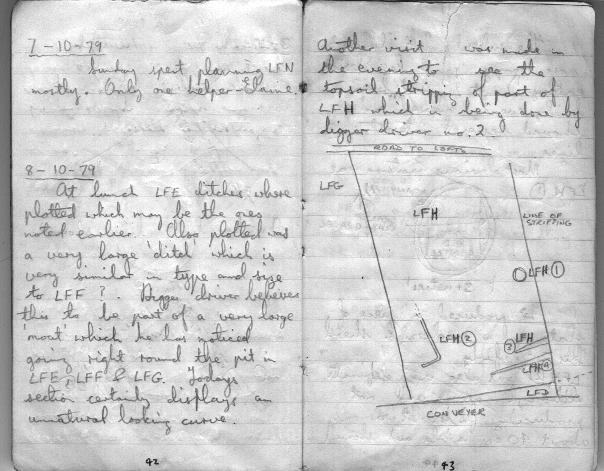 7-10-79
Sunday spent planning LFN
mostly. Only one helper - Elaine.
8-10-79
At lunch LFE ditches where
plotted which may be the ones
noted earlier. Also plotted was
a very large 'ditch' which is
very similar in type and size
to LFF ?. Digger driver believes
this to be part of a very large
'moat' which he has noticed
going right round the pit in
LFE, LFF & LFG. Todays
section certainly displays an
unnatural looking curve.
42
Another visit was made in
the evening to see the
topsoil stripping of part of
LFH which is being done by
digger driver no. 2
ROAD TO LOFTS
LFG
LFH
LINE OF
STRIPPING
LFH 1
LFH 2
LFH
3
LFH 4
LFJ
CONVEYER
43